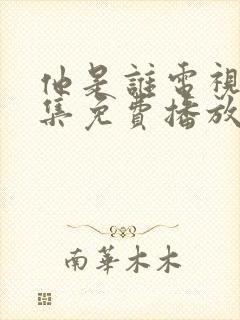 他是誰電視
集免費播放
南華木木